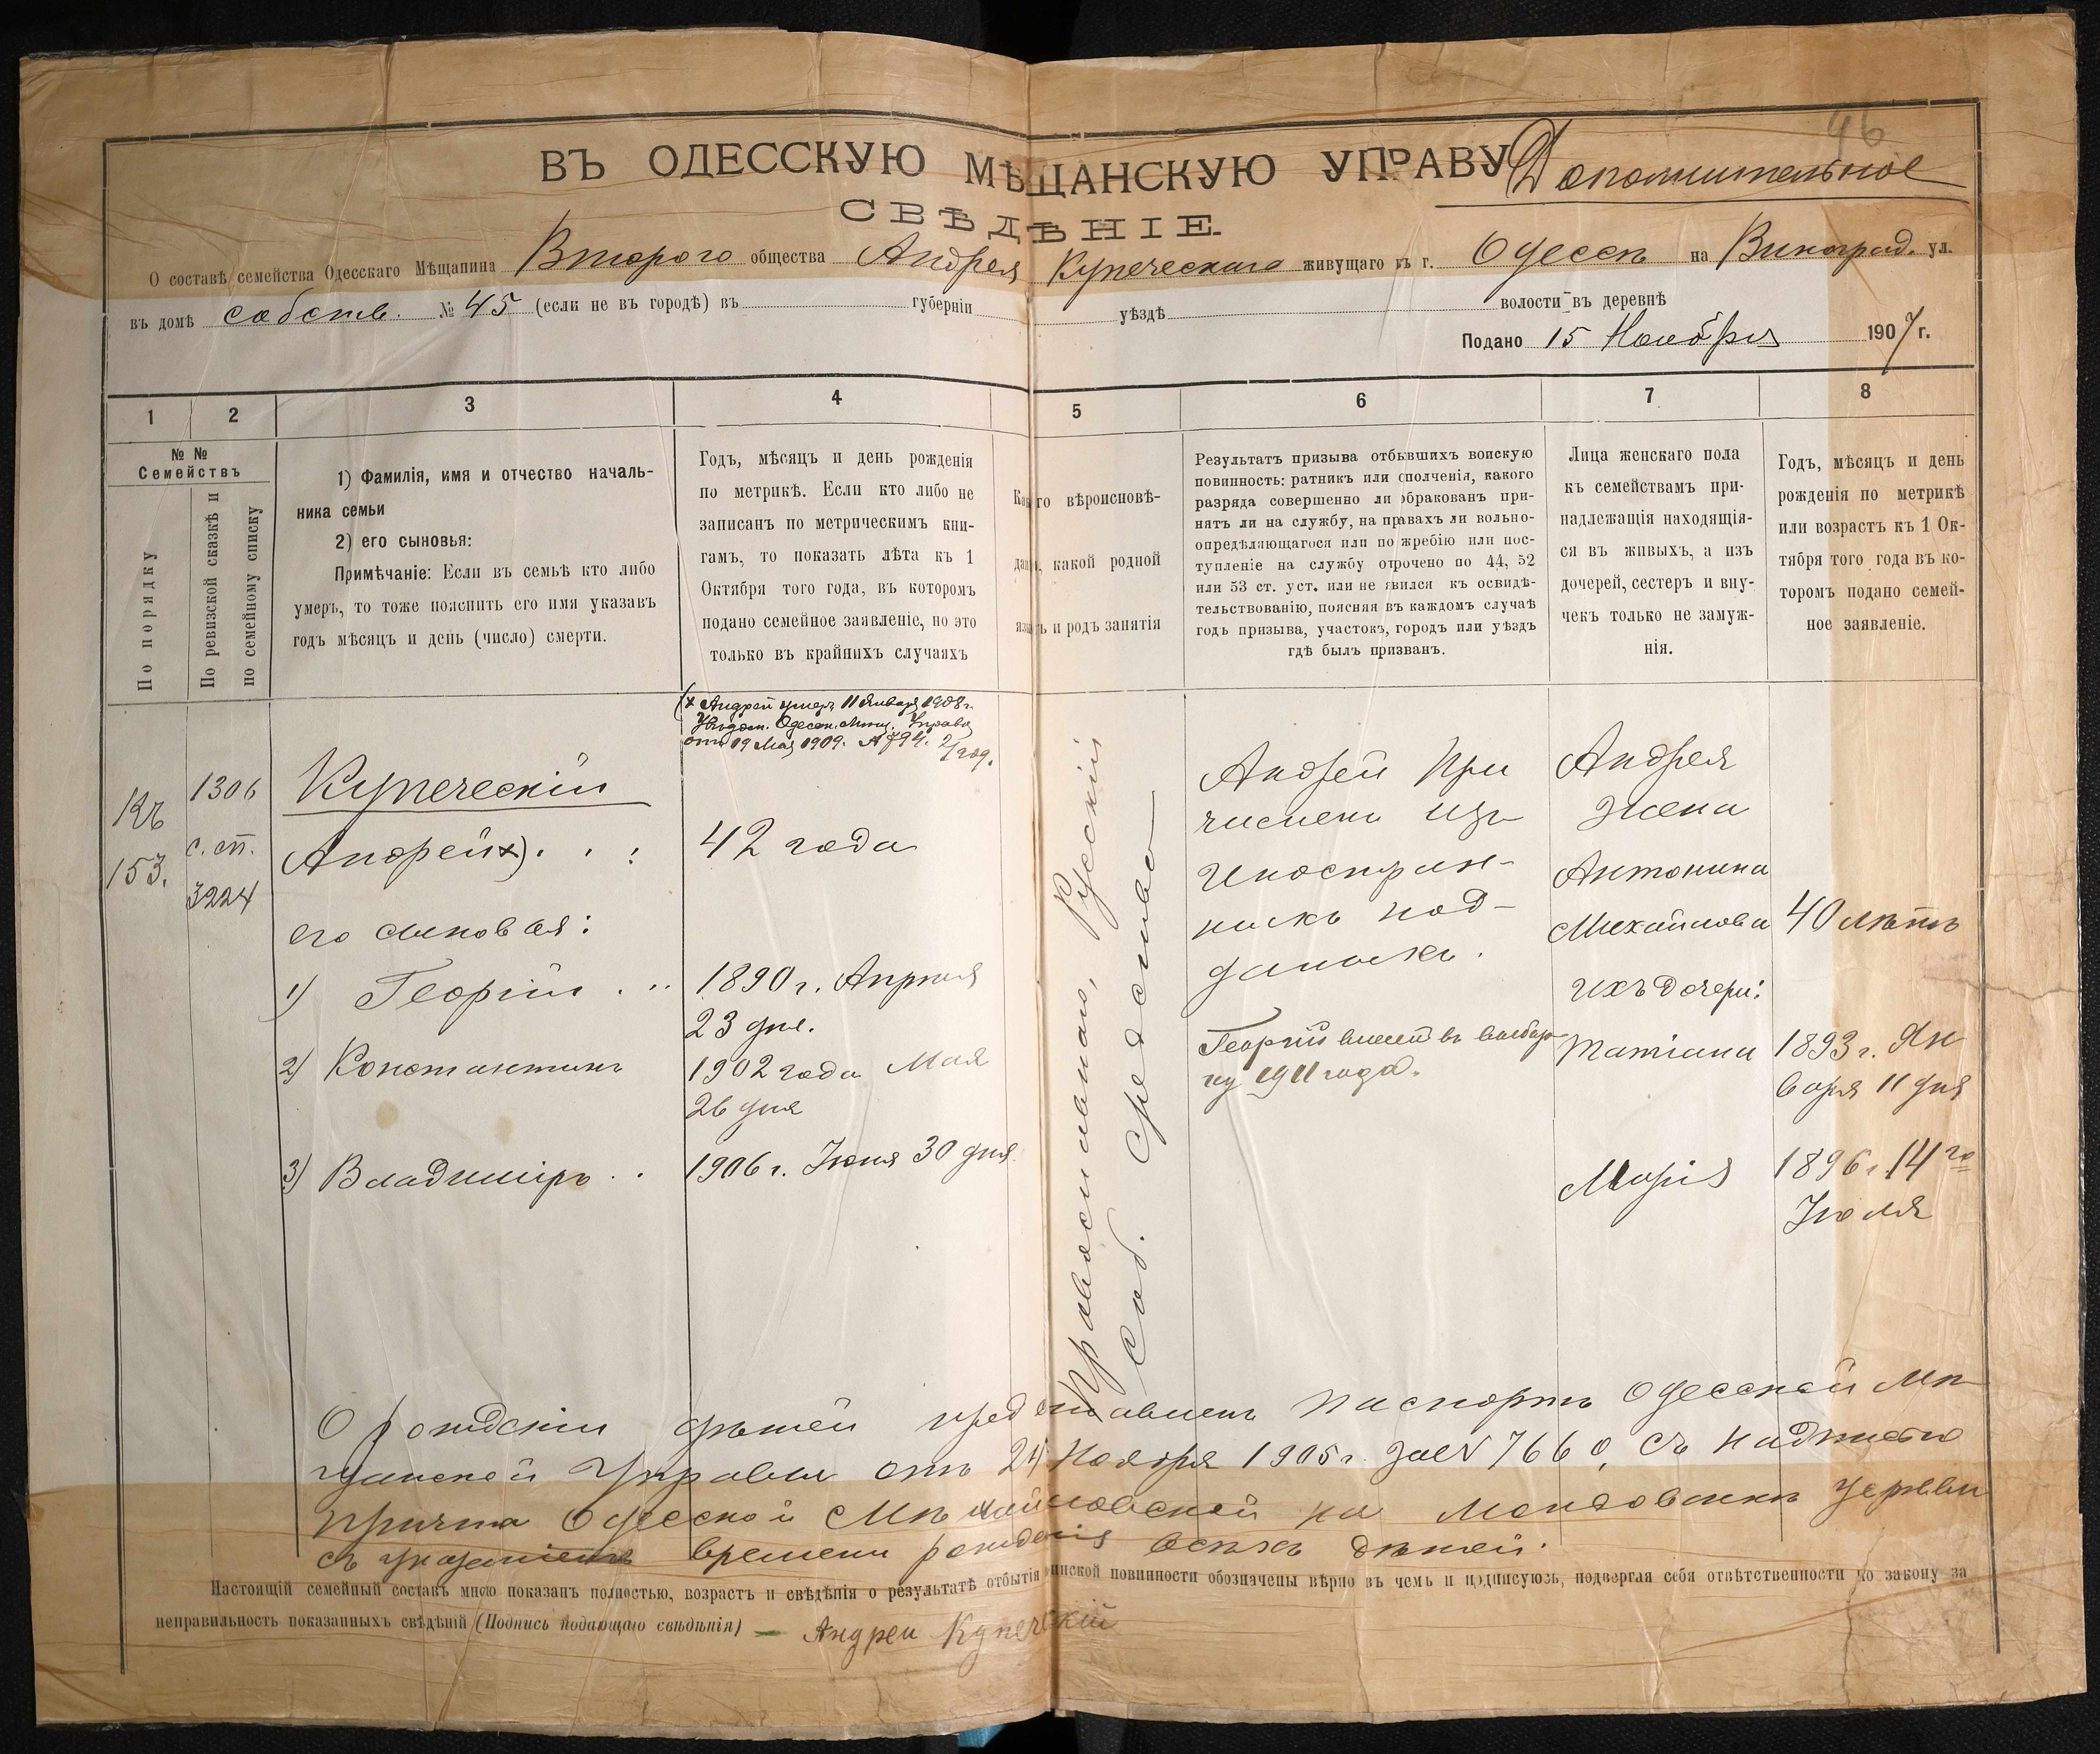 96
ВЪ ОДЕССКУЮ МѢЩАНСКУЮ УПРАВУ Дополнительное
СВѢДѢНІЕ.
О составѣ семейства Одесскаго Мѣщанина Второго общества Андрея Купеческаго живущаго въ г. Одессѣ на Виноград. ул.
въ домѣ собств. № 45 (если не въ городѣ) въ губерніи уѣздѣ волости въ деревнѣ
Подано 15 Ноября 1907 г.
1 2 3 4 5 6 7 8
№ №
Семействъ
По порядку
По ревизской сказкѣ и
по семейному списку
1) Фамилія, имя и отчество началь-
ника семьи
2) его сыновья:
Примѣчаніе: Если въ семьѣ кто либо
умеръ, то тоже пояснить его имя указавъ
годъ мѣсяцъ и день (число) смерти.
Годъ, мѣсяцъ и день рожденія
по метрикѣ. Если кто либо не
записанъ по метрическимъ кни-
гамъ, то показать лѣта къ 1
Октября того года, въ которомъ
подано семейное заявленіе, но это
только въ крайнихъ случаяхъ
Какого вѣроисповѣ-
данія, какой родной
языкъ и родъ занятія
Результатъ призыва отбывшихъ воискую
повинность: ратникъ или ополченія, какого
разряда совершенно ли обракованъ при-
нятъ ли на службу, на правахъ ли вольно-
опредѣляющагося или по жребію или пос-
тупленіе на службу отрочено по 44, 52
или 53 ст. уст. или не явился къ освидѣ-
тельствованію, поясняя въ каждомъ случаѣ
годъ призыва, участокъ, городъ или уѣздъ
гдѣ былъ призванъ.
Лица женскаго пола
къ семействамъ при-
надлежащія находящія-
ся въ живыхъ, а изъ
дочерей, сестеръ и вну-
чекъ только не замуж-
нія.
Годъ, мѣсяцъ и день
рожденія по метрикѣ
или возрастъ къ 1 Ок-
тября того года въ ко-
торомъ подано семей-
ное заявленіе.
Къ
153.
1306
с. сп.
3224
Купеческій
Андрей x) . . :
его сыновья:
1) Георгій . . .
2) Константинъ
3) Владиміръ . .
(x Андрей умеръ 11 Января 1908 г.
Увѣдом. Одесск. Мѣщ. Управы
отъ 19 Мая 1909. №794.
42 года
1890 г. Апрѣля
23 дня.
1902 года Мая
26 дня
1906 г. Іюня 30 дня.
Православнаго, Русскій
Соб. средства
Андрей При
численъ изъ
Иностран-
ныхъ под-
данныхъ.
Георгій внесенъ въ выбор-
ку 1911 года.
Андрея
жена
Антонина
Михайлова
ихъ дочери:
Татіана
Марія
40 лѣтъ
1893 г. Ян
варя 11 дня
1896 г. 14го
Іюля
О рожденіи дѣтей представленъ паспортъ Одесской Мѣ
щанской Управы отъ 24 Ноября 1905 г. за № 7660, съ надписью
причта Одесской Михайловской на Молдованкѣ церкви
съ указаніемъ времени рожденія всѣхъ дѣтей.
Настоящій семейный составъ мною показанъ полностью, возрастъ и свѣдѣнія о результатѣ отбытія воинской повинности обозначены вѣрно въ чемъ и подписуюсь, подвергая себя отвѣтственности по закону за
неправильность показанныхъ свѣдѣній (Подпись подающаго свѣдѣнія) — Андреи Купечскій